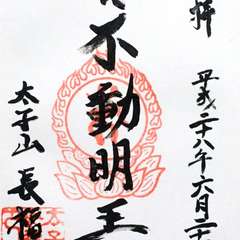 拝
平成二十八年六月二十
不動明王
太子山 長福